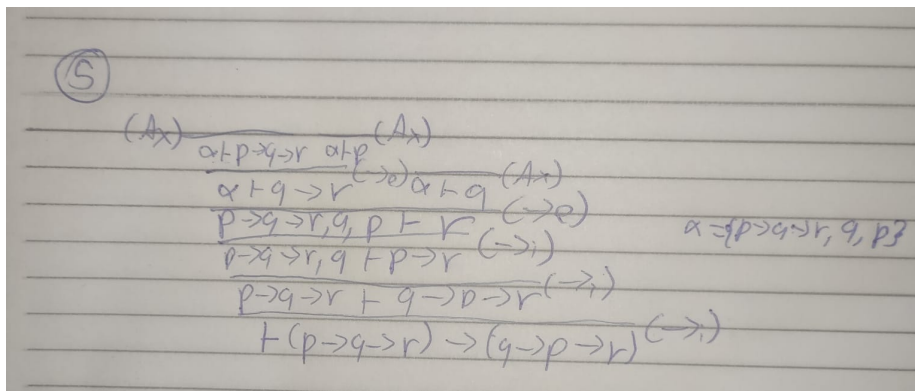 5
(Ax) α⊢p→q→r α⊢p (Ax)
α⊢q→r (→e) α⊢q (Ax)
p→q→r, q, p ⊢ r (→e)
α={p→q→r, q, p}
p→q→r, q ⊢ p→r (→i)
p→q→r ⊢ q→p→r (→i)
⊢(p→q→r)→(q→p→r) (→i)